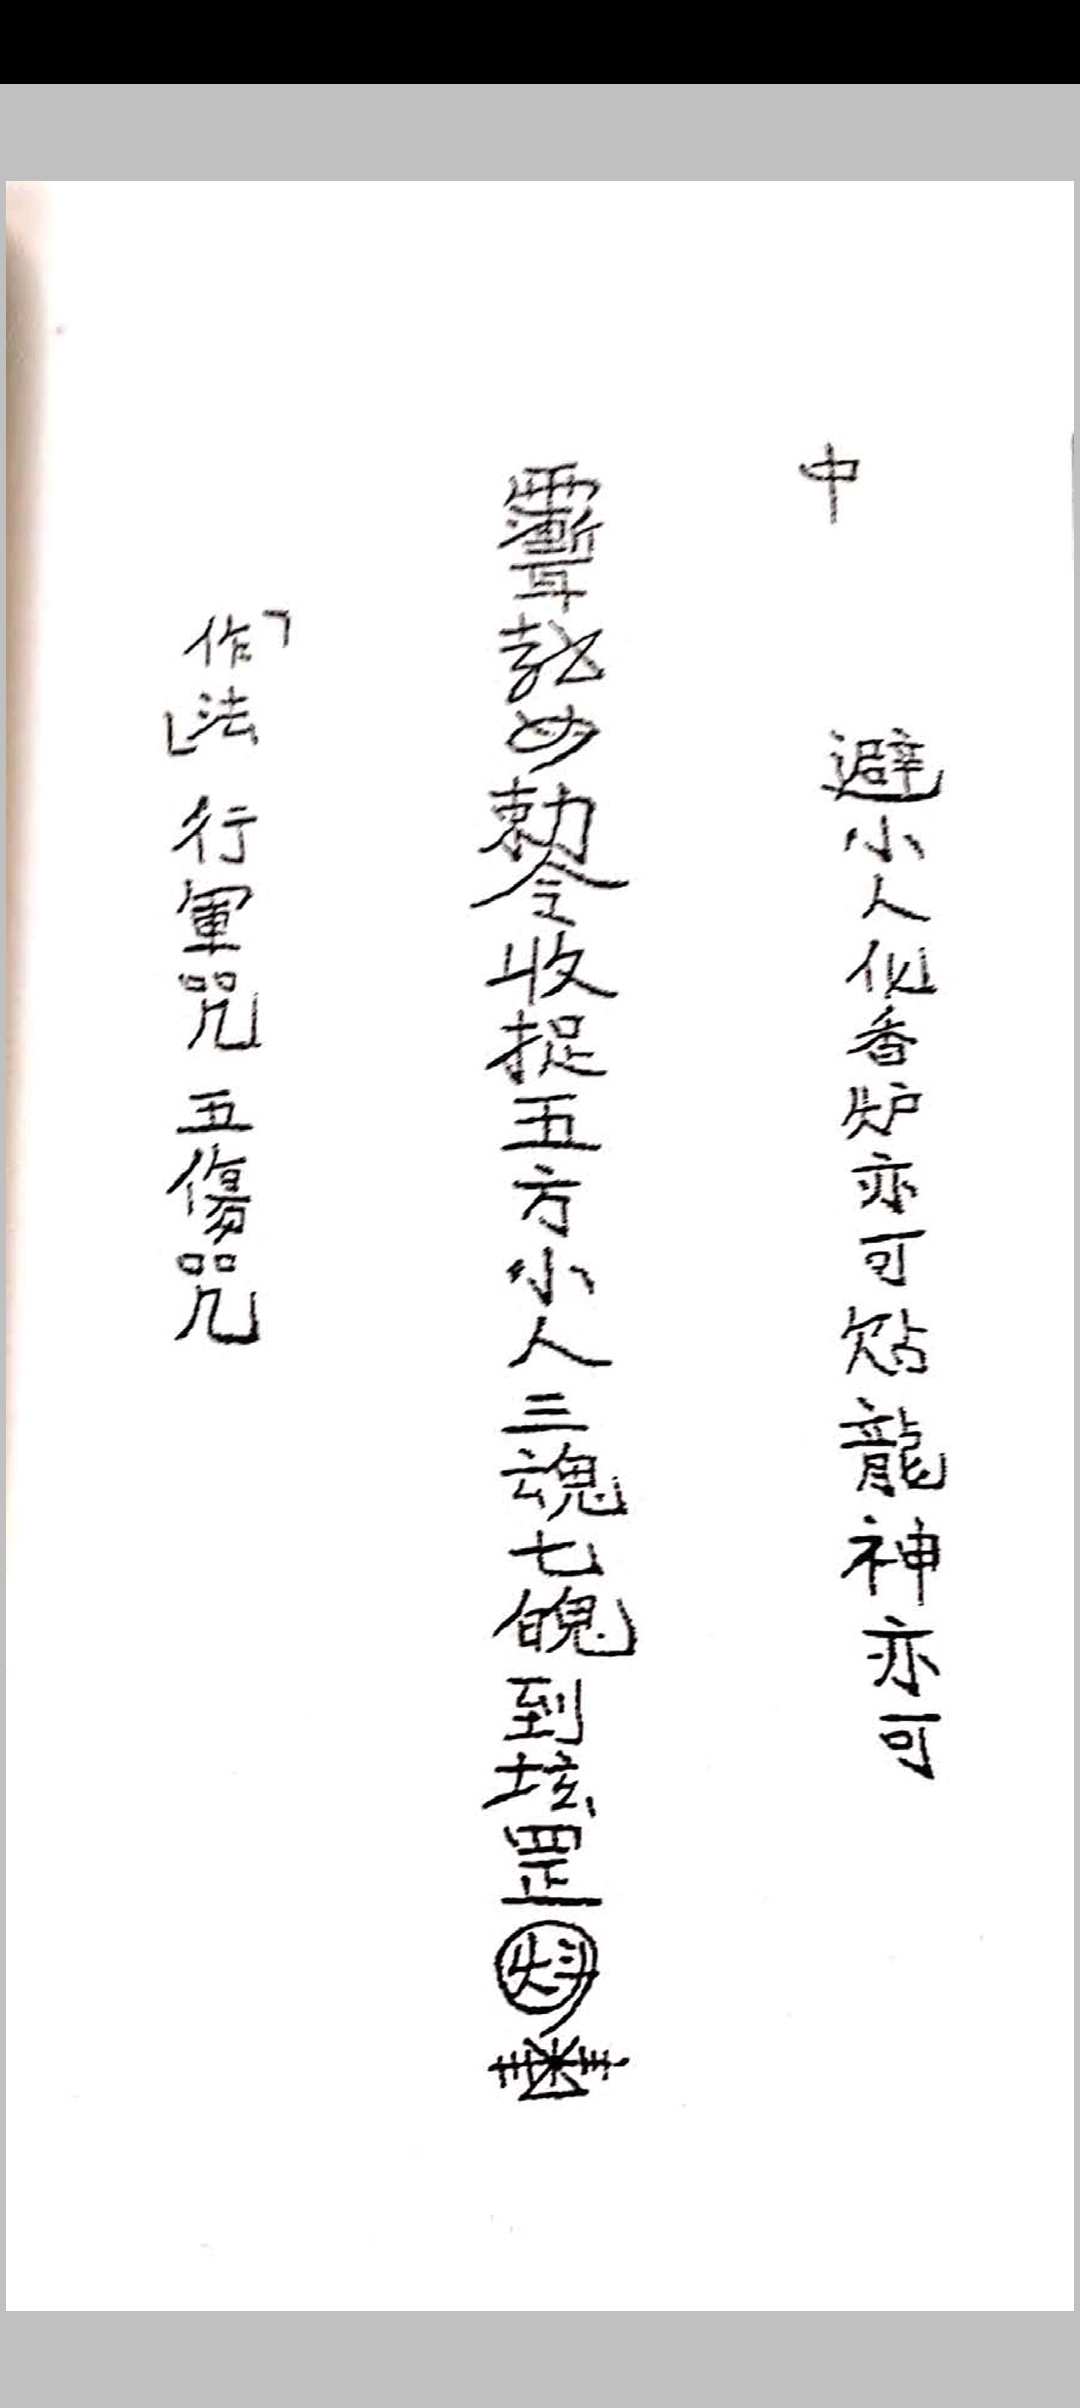 中 避小人化香炉亦可贴龍神亦可
勅令收捉五方小人三魂七魄到坛罡
「作法」 行軍咒 五傷咒